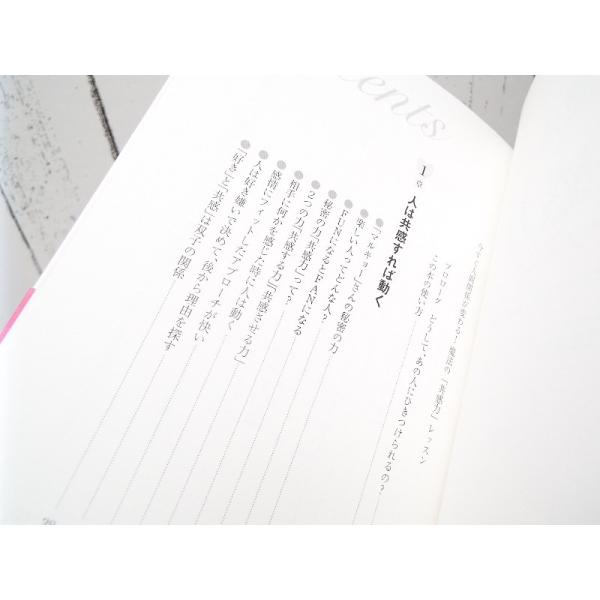 ents
今すぐ人間関係が変わる!魔法の「共感力」レッスン
プロローグ どうして、あの人にひきつけられるの?
この本の使い方
1章 人は共感すれば動く
「マルキョー」さんの秘密の力
楽しい人ってどんな人?
FUNになるとFANになる
秘密の力「共感力」って?
2つの力「共感する力」「共感させる力」
相手に何かを感じた時に人は動く
感情にフィットしたアプローチが快い
人は好き嫌いで決めて、後から理由を探す
「好き」と「共感」は双子の関係